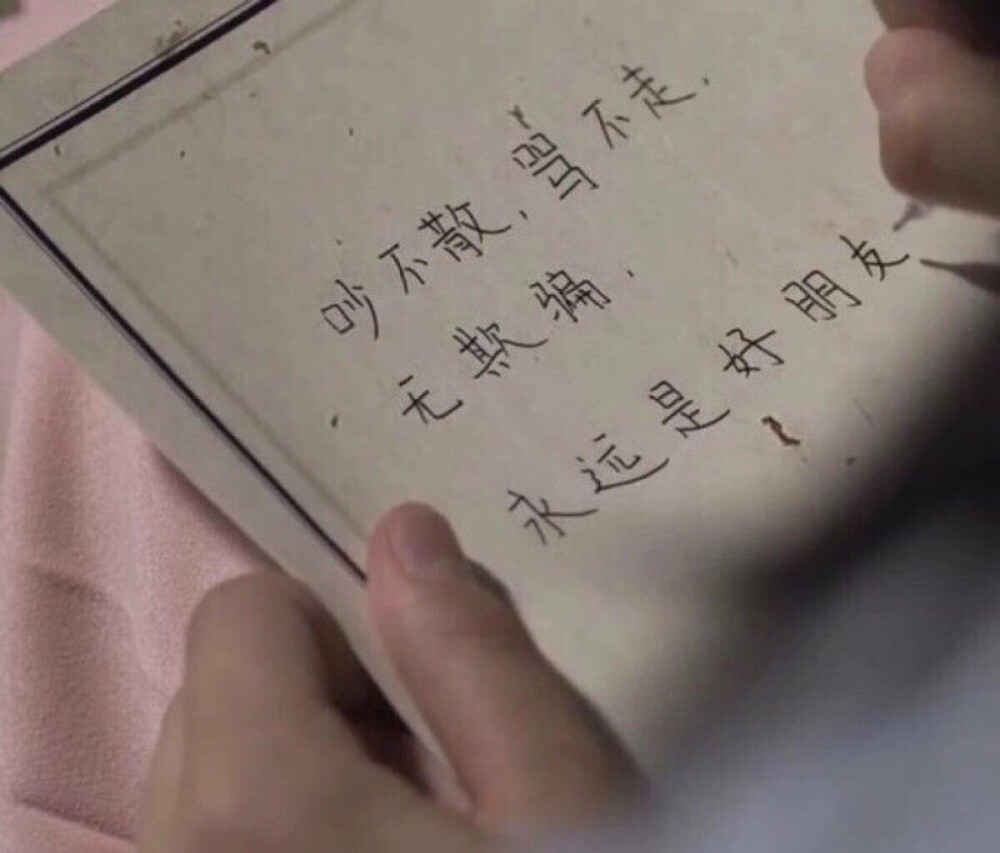 吵不散,骂不走.
无欺骗.
永远是好朋友